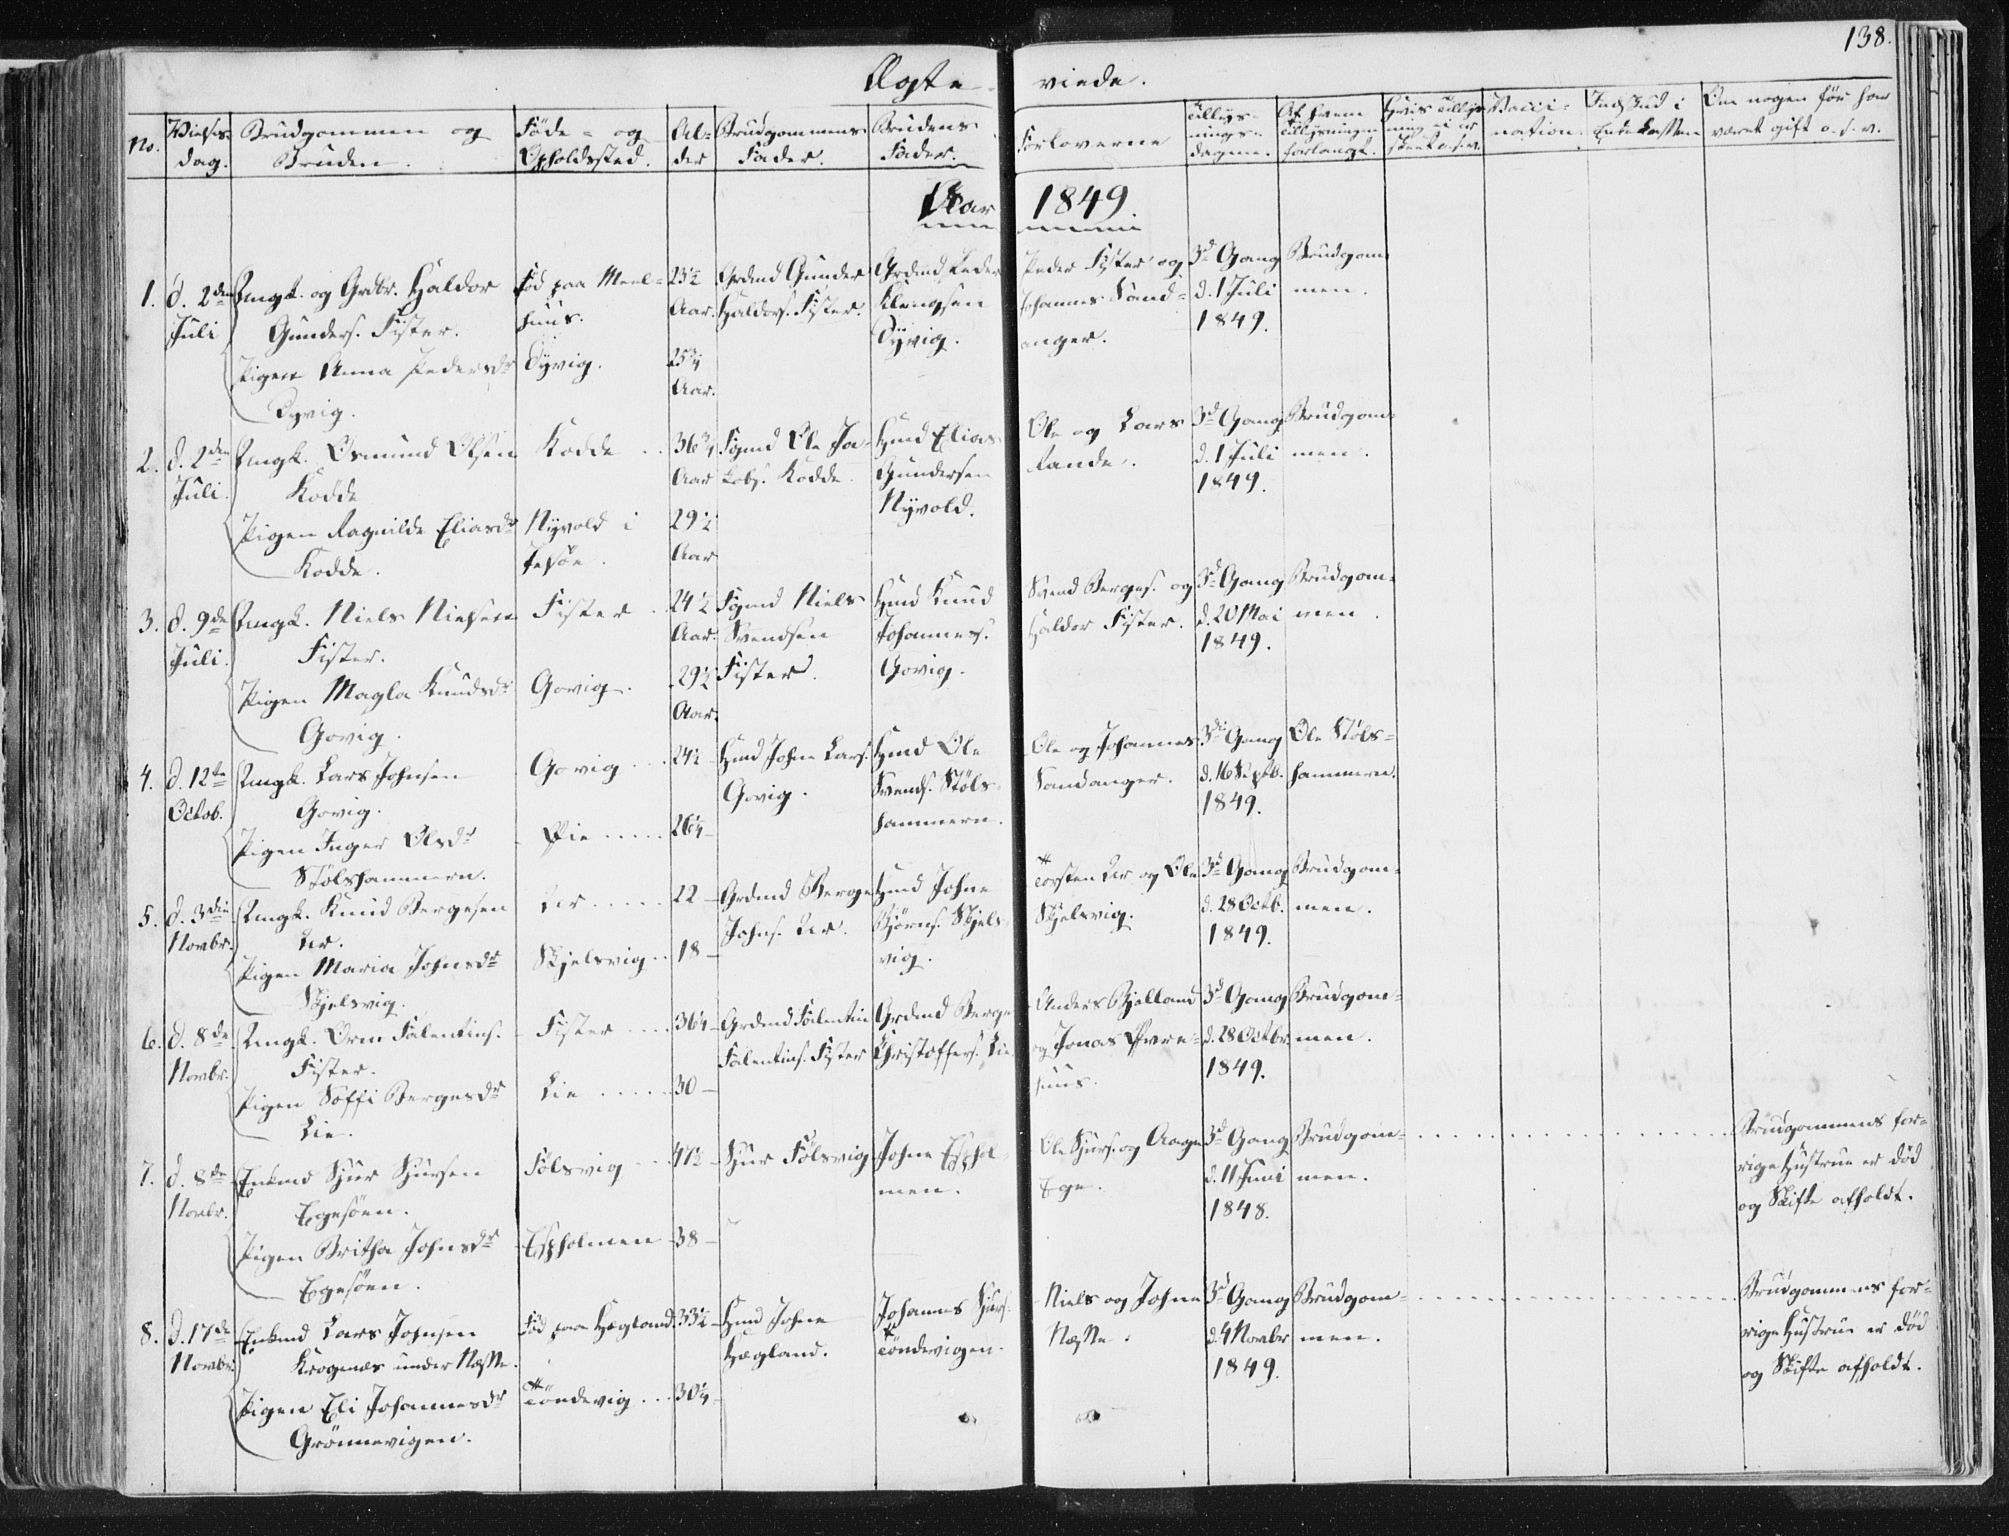 138.
Ægte viede.
No.
Vielses-
dag.
Brudgommen og
Bruden.
Føde- og
Opholdssted.
Al-
der
Brudgommens
Fader.
Brudens
Fader.
Forloverne
Tillys-
nings-
dagene.
Af hvem
Tillysningen
forlangt.
Hvis Tillys-
ning ei er
skeet o.s.v.
Vacci-
nation.
Indskud i
Enkekassen
Om nogen før har
været gift o.s.v.
Aar 1849.
1.
d. 2den
Juli
Ungk. og Grdbr. Haldor
Gunders. Fister.
Pigen Anna Pedersdr
Dyvig.
Fød paa Meel-
huus.
Dyvig.
23½
Aar.
25¾
Aar.
Grdmd Gunder
Haldors. Fister.
Grdmd Peder
Klemgsen
Dyvig.
Peder Fister og
Johannes Sand-
anger.
3d Gang
d. 1 Juli
1849.
Brudgom-
men.
2.
d. 2den
Juli.
Ungk. Osmund Olsen
Kodde
Pigen Ragnilde Eliasdr
Kodde.
Kodde
Nyvold i
Fesøe.
36¾
Aar
29½
Aar
Fgmd Ole Ja-
kobs. Kodde.
Hmd Elias
Gundersen
Nyvold.
Ole og Lars
Rande.
3d Gang
d. 1 Juli
1849.
Brudgom-
men.
3.
d. 9de
Juli.
Ungk. Niels Nielsen
Fister.
Pigen Magla Knudsdr
Govig.
Fister
Govig.
24½
Aar.
29½
Aar.
Fgmd Niels
Svendsen
Fister.
Hmd Knud
Johannes.
Govig.
Svend Berges. og
Haldor Fister.
3d Gang
d. 20 Mai
1849.
Brudgom-
men.
4.
d. 12te
Octob.
Ungk. Lars Johnsen
Govig.
Pigen Inger Olsdr
Stølshammern.
Govig
Pie
24½
26¼
Hmd John Lars.
Govig.
Hmd Ole
Svends. Støls-
hammern.
Ole og Johannes
Sandanger.
3di Gang
d. 16 Septb.
1849.
Ole Støls-
hammern.
5.
d. 3die
Novbr.
Ungk. Knud Bergesen
Ler.
Pigen Maria Johnsdr
Skjelsvig.
Ler
Skjelsvig
22
18
Grdmd Berge
Johns. Ler.
Hmd Johne
Bjørns. Skjels-
vig.
Torsten Ler og Ole
Skjelsvig.
3d Gang
d. 28 Octb.
1849.
Brudgom-
men.
6.
d. 8de
Novbr.
Ungk. Orm Falentins.
Fister.
Pigen Soffi Bergesdr
Lie.
Fister
Lie
36¼
30
Grdmd Falentin
Falentins. Fister
Grdmd Berge
Christoffers. Lie.
Anders Bjelland
og Jonas Øvre-
huus.
3d Gang
d. 28 Octbr.
1849.
Brudgom-
men.
7.
d. 8de
Novbr.
Enkmd Sjur Sjursen
Egesøen.
Pigen Britha Johnsdr
Egesøen.
Følsvig
Espholmen
47½
38
Sjur Følsvig
Johne Esphol-
men.
Ole Sjurs. og Aage
Ege.
3d Gang
d. 11 Juni
1848.
Brudgom-
men.
Brudgommens for-
rige Hustrue er død
og Skifte afholdt.
8.
d. 17de
Novbr.
Enkmd Lars Johnsen
Krognæs under Næsse.
Pigen Eli Johannesdr
Grønnevigen.
Fød paa Hægland.
Tøndevig
33½
30¼
Hmd Johne
Hægland.
Johannes Sjurs.
Tøndevigen.
Niels og Johne
Næsse.
3d Gang
d. 4 Novbr
1849.
Brudgom-
men.
Brudgommens for-
rige Hustrue er død
og Skifte afholdt.